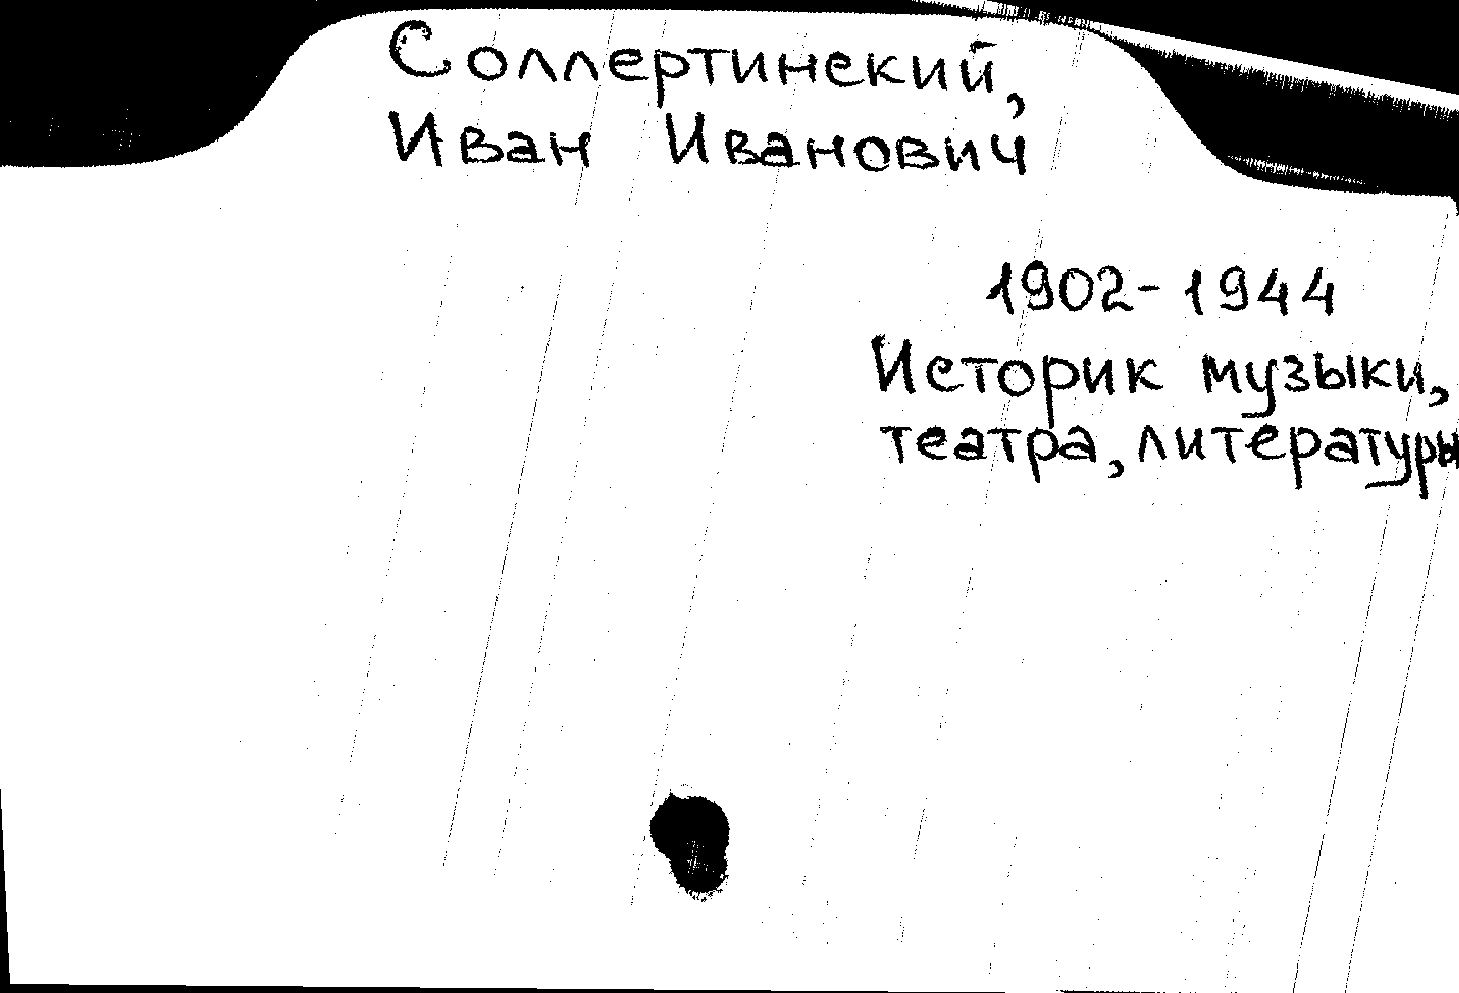 Соллертинский,
Иван Иванович
1902-1944
Историк музыки,
театра, литературы